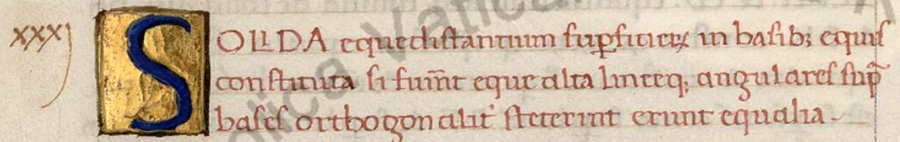 xxxj
SOLIDA equedistantium sup̲ficieꝝ in basibꝫ equis
constituta si fuer̃t eque alta lineeqꝫ angulares sup̃
bases orthogonalit̾ steterint erunt equalia